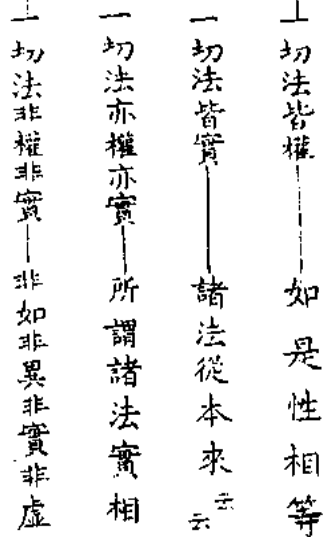 一切法皆權——如是性相等
一切法皆實——諸法從本來云云
一切法亦權亦實——所謂諸法實相
一切法非權非實——非如非異非實非虛